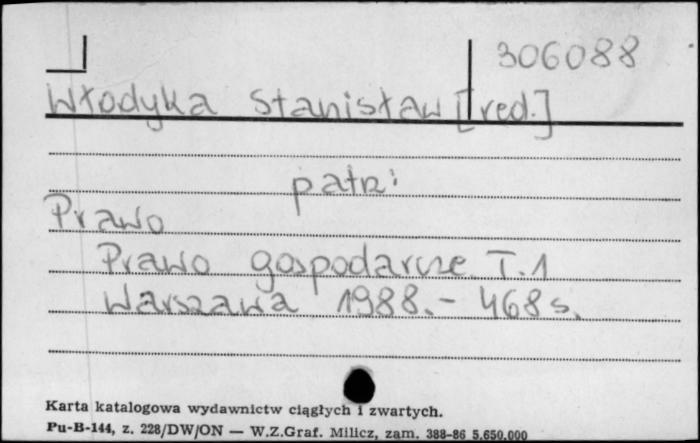 306088
Włodyka Stanisław [red.]
patrz:
Prawo
Prawo gospodarcze T.1
Warszawa 1988.- 468 s.
Karta katalogowa wydawnictw ciągłych i zwartych.
Pu-B-144, z. 228/DW/ON — W.Z.Graf. Milicz, zam. 388-86 5.650.000